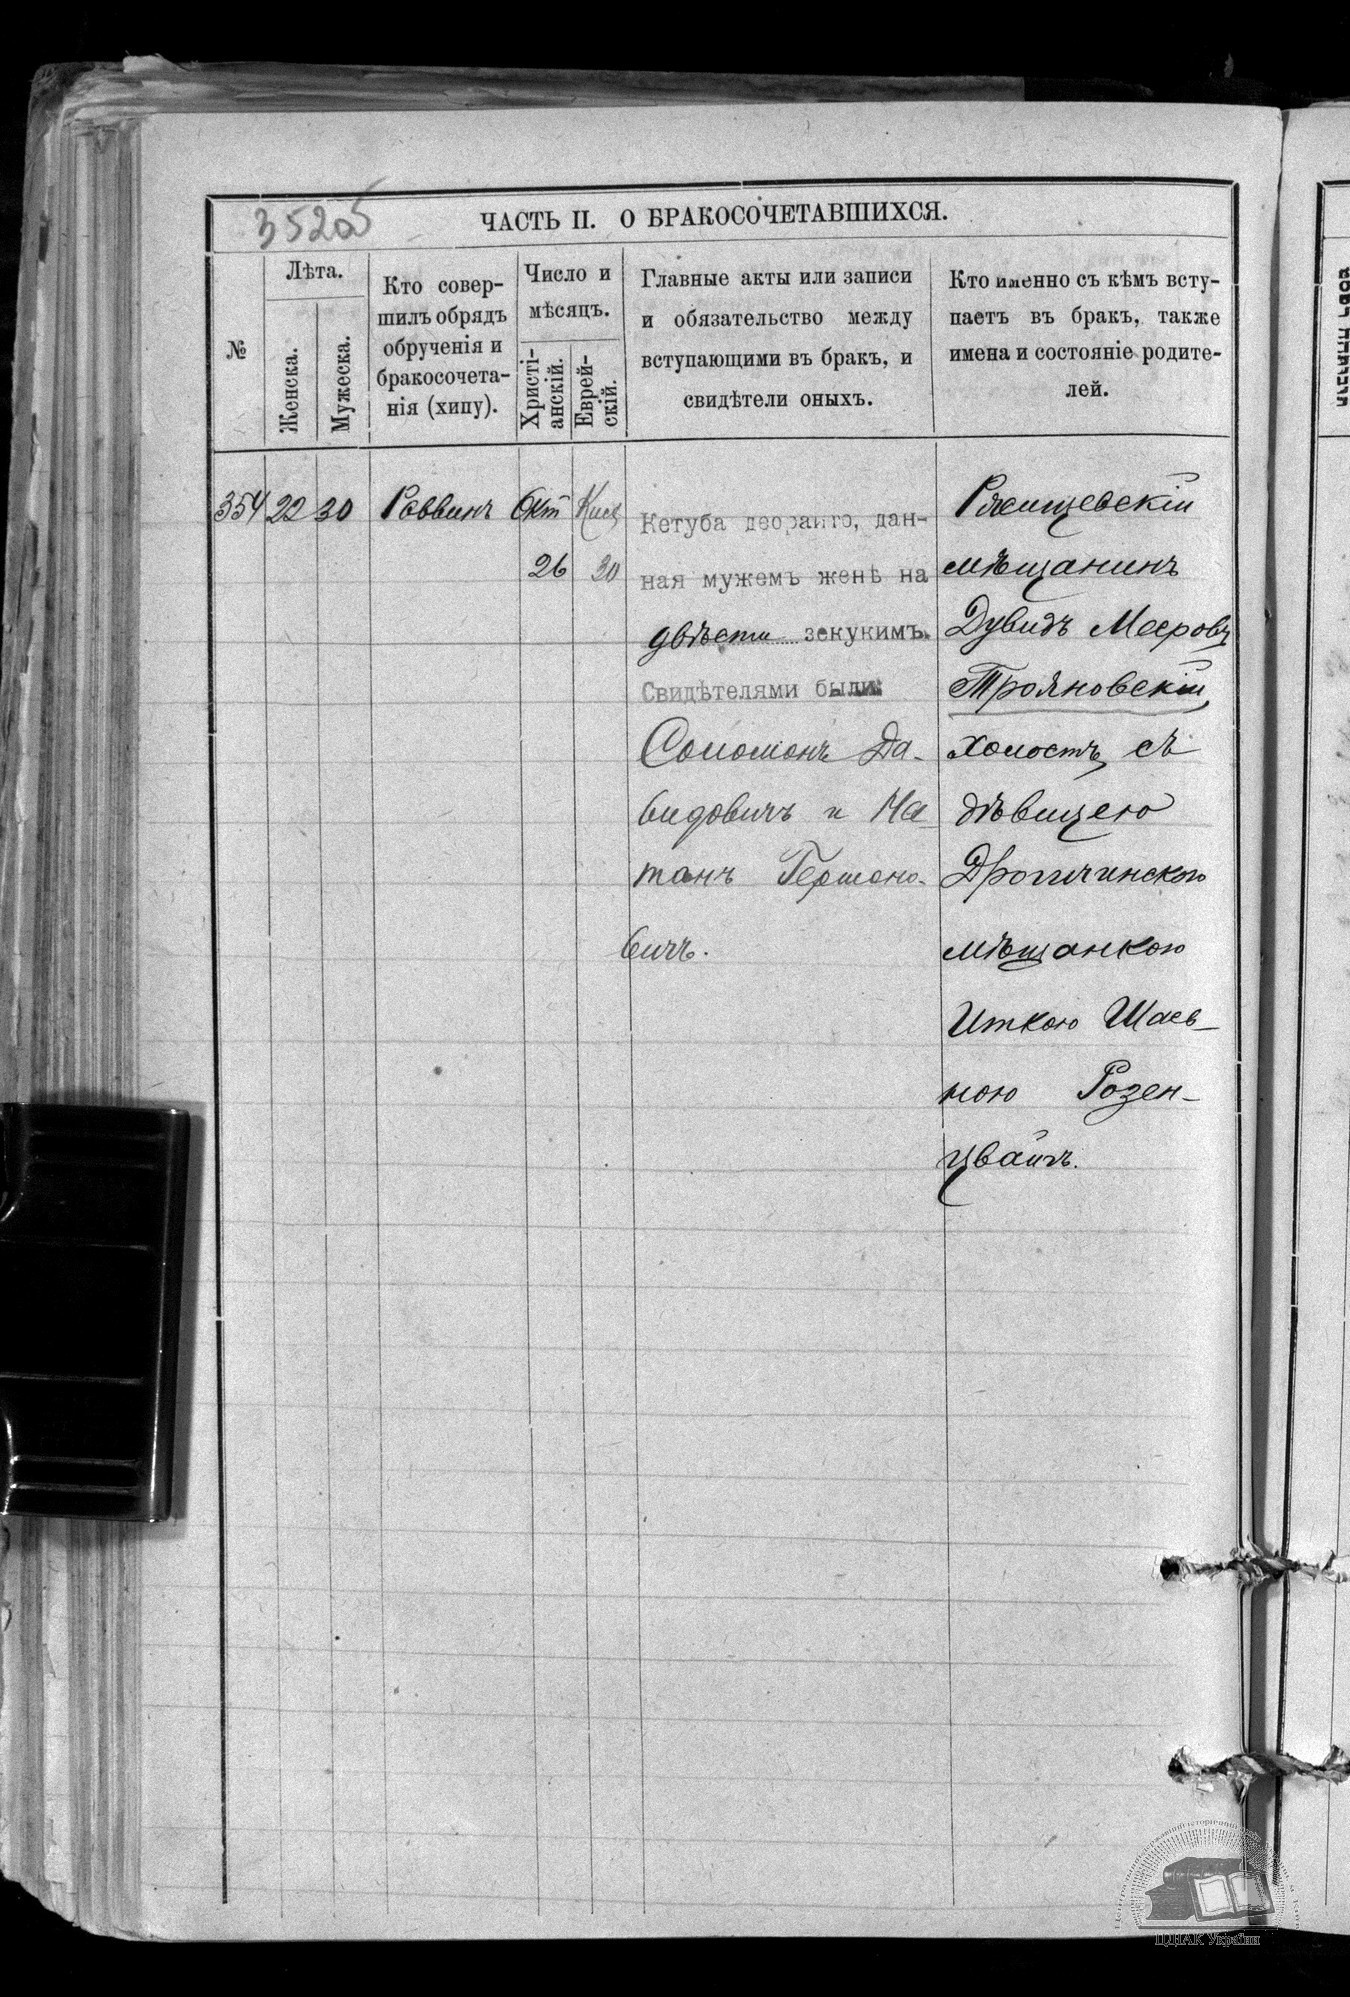 35205
ЧАСТЬ II. О БРАКОСОЧЕТАВШИХСЯ.
№
Лѣта.
Женска.
Мужеска.
Кто совер-
шилъ обрядъ
обрученія и
бракосочета-
нія (хипу).
Число и
мѣсяцъ.
Христі-
анскій.
Еврей-
скій.
Главные акты или записи
и обязательство между
вступающими въ бракъ, и
свидѣтели оныхъ.
Кто именно съ кѣмъ всту-
паетъ въ бракъ, также
имена и состояніе родите-
лей.
354 22 30 Раввинъ Окт
26
30
Кетуба деорайто, дан-
ная мужемъ женѣ на
двѣсти зекукимъ.
Свидѣтелями были:
Соломонъ Да-
видовичъ и На-
танъ Гершоно-
вичъ.
Ржищевскій
мѣщанинъ
Дувидъ Мееровъ
Трояновскій,
холостъ, съ
дѣвицею
Дрогичинскою
мѣщанкою
Иткою Шаев-
ною Розен-
цвайгъ.
ЦДІАК України